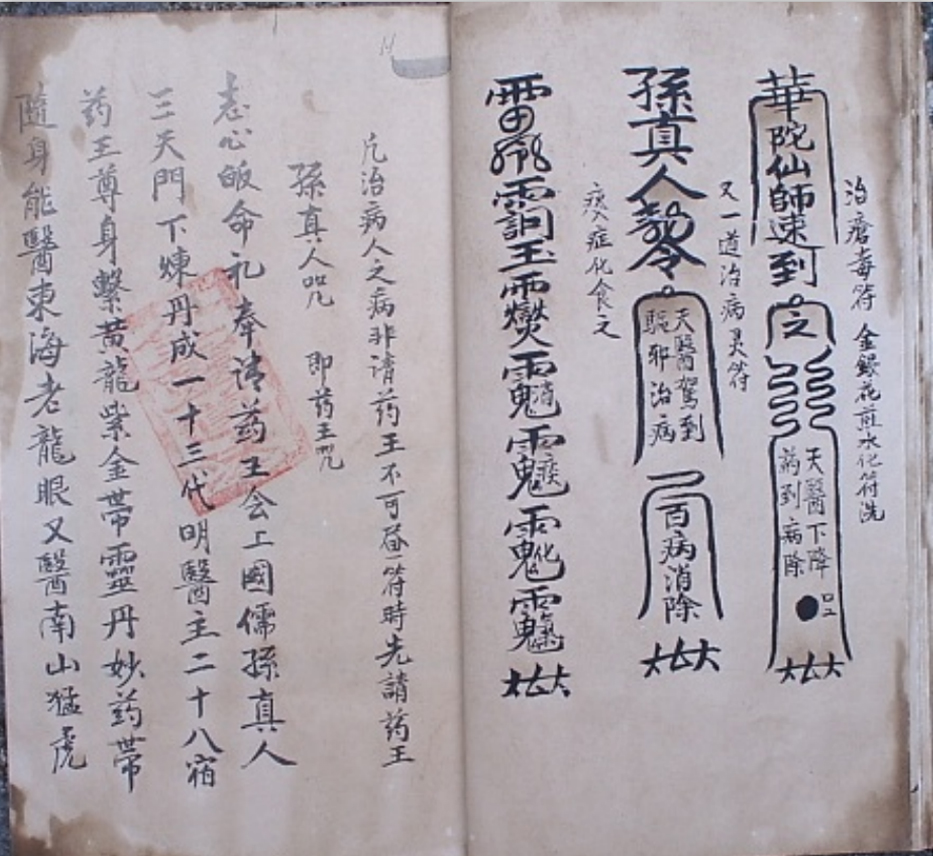 治瘡毒符 金銀花煎水化符洗
華陀仙師速到
之
天醫下降
药到病除
又一道治病灵符
孫真人敕令
天醫駕到
驅邪治病
百病消除
痰症化食之
凢治病人之病非请药王不可昼符時先請药王
孫真人咒 即药王咒
志心皈命礼奉请药王会上國儒孫真人
三天門下煉丹成一十三代明醫主二十八宿
药王尊身繫黄龍紫金带靈丹妙药带
隨身能醫東海老龍眼又醫南山猛虎